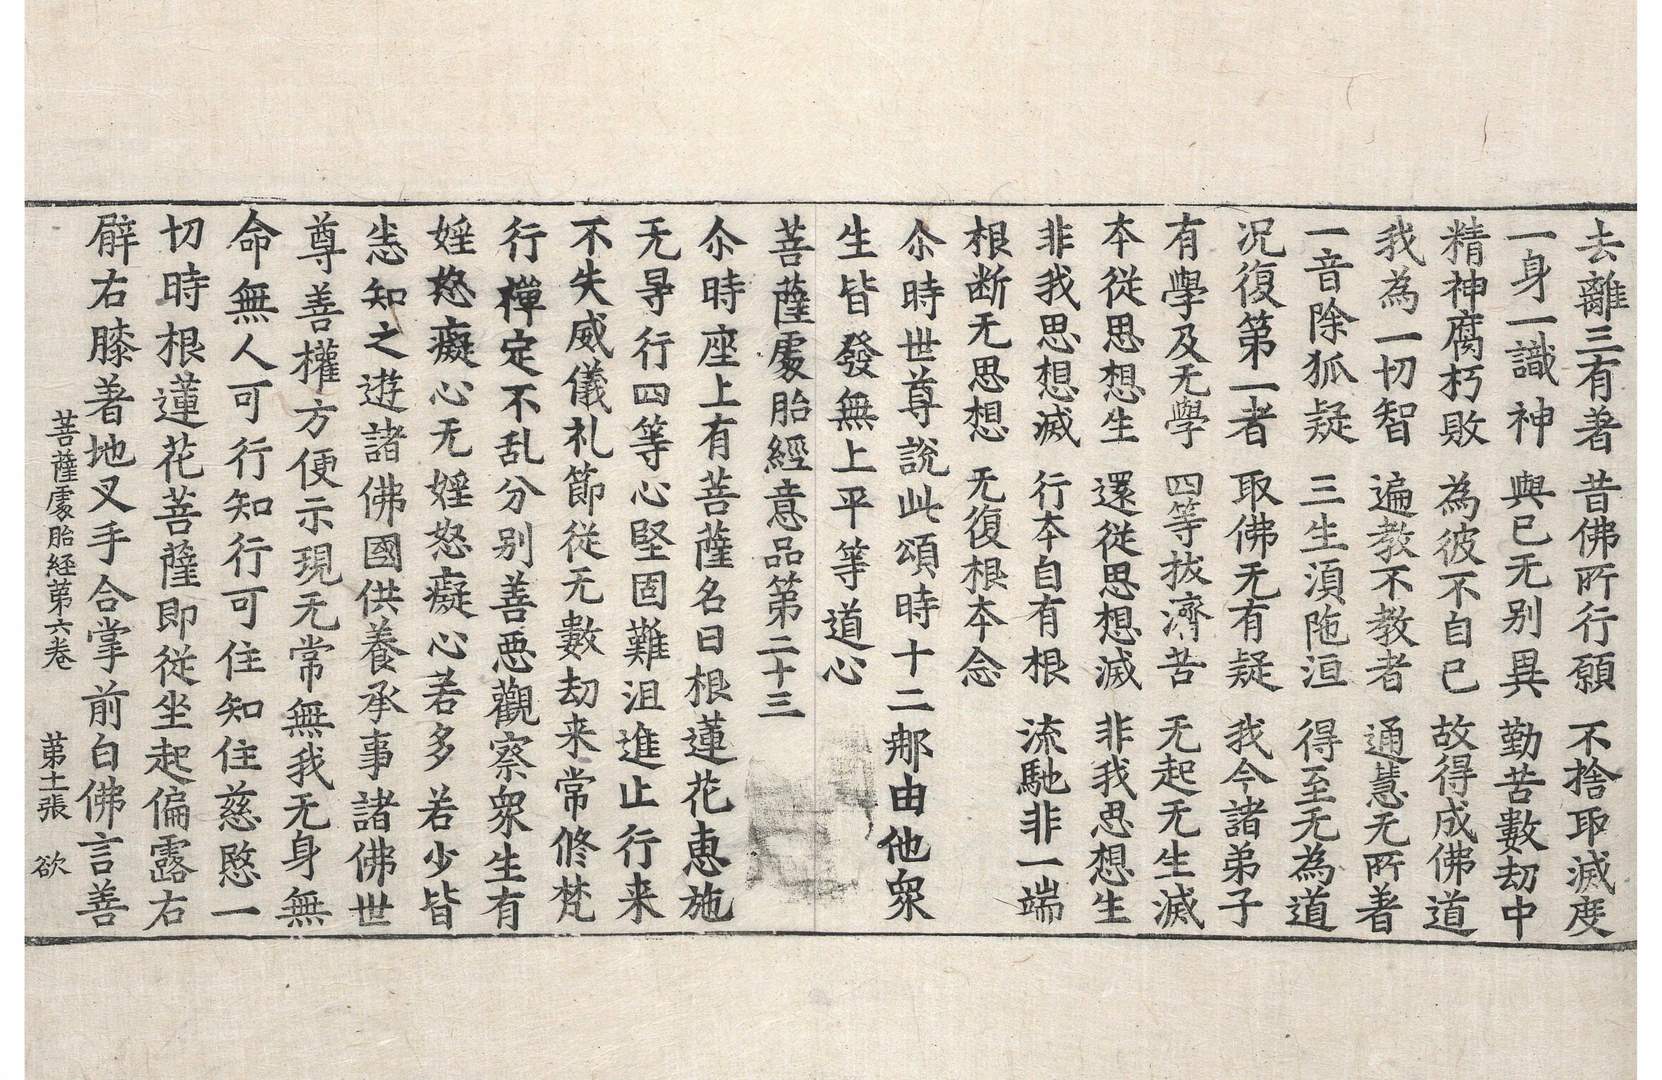 去離三有著　昔佛所行願　不捨取滅度
一身一識神　與已无別異　勤苦數劫中
精神腐朽敗　為彼不自已　故得成佛道
我為一切智　遍教不教者　通慧无所著
一音除狐疑　三生湏陁洹　得至无為道
况復第一者　取佛无有疑　我今諸弟子
有學及无學　四等拔濟苦　无起无生滅
本從思想生　還從思想滅　非我思想生
非我思想滅　行本自有根　流馳非一端
根断无思想　无復根本念
尒時世尊說此頌時十二那由他衆
生皆發無上平等道心
菩薩處胎經意品第二十三
尒時座上有菩薩名曰根蓮花惠施
无㝵行四等心堅固難沮進止行来
不失威儀礼節從无數劫来常修梵
行禪定不乱分別善惡觀察衆生有
婬怒癡心无婬怒癡心若多若少皆
悉知之遊諸佛國供養承事諸佛世
尊善權方便示現无常無我无身無
命無人可行知行可住知住慈愍一
切時根蓮花菩薩即從坐起偏露右
臂右膝著地叉手合掌前白佛言善
菩薩處胎経第六卷　第十一張　欲